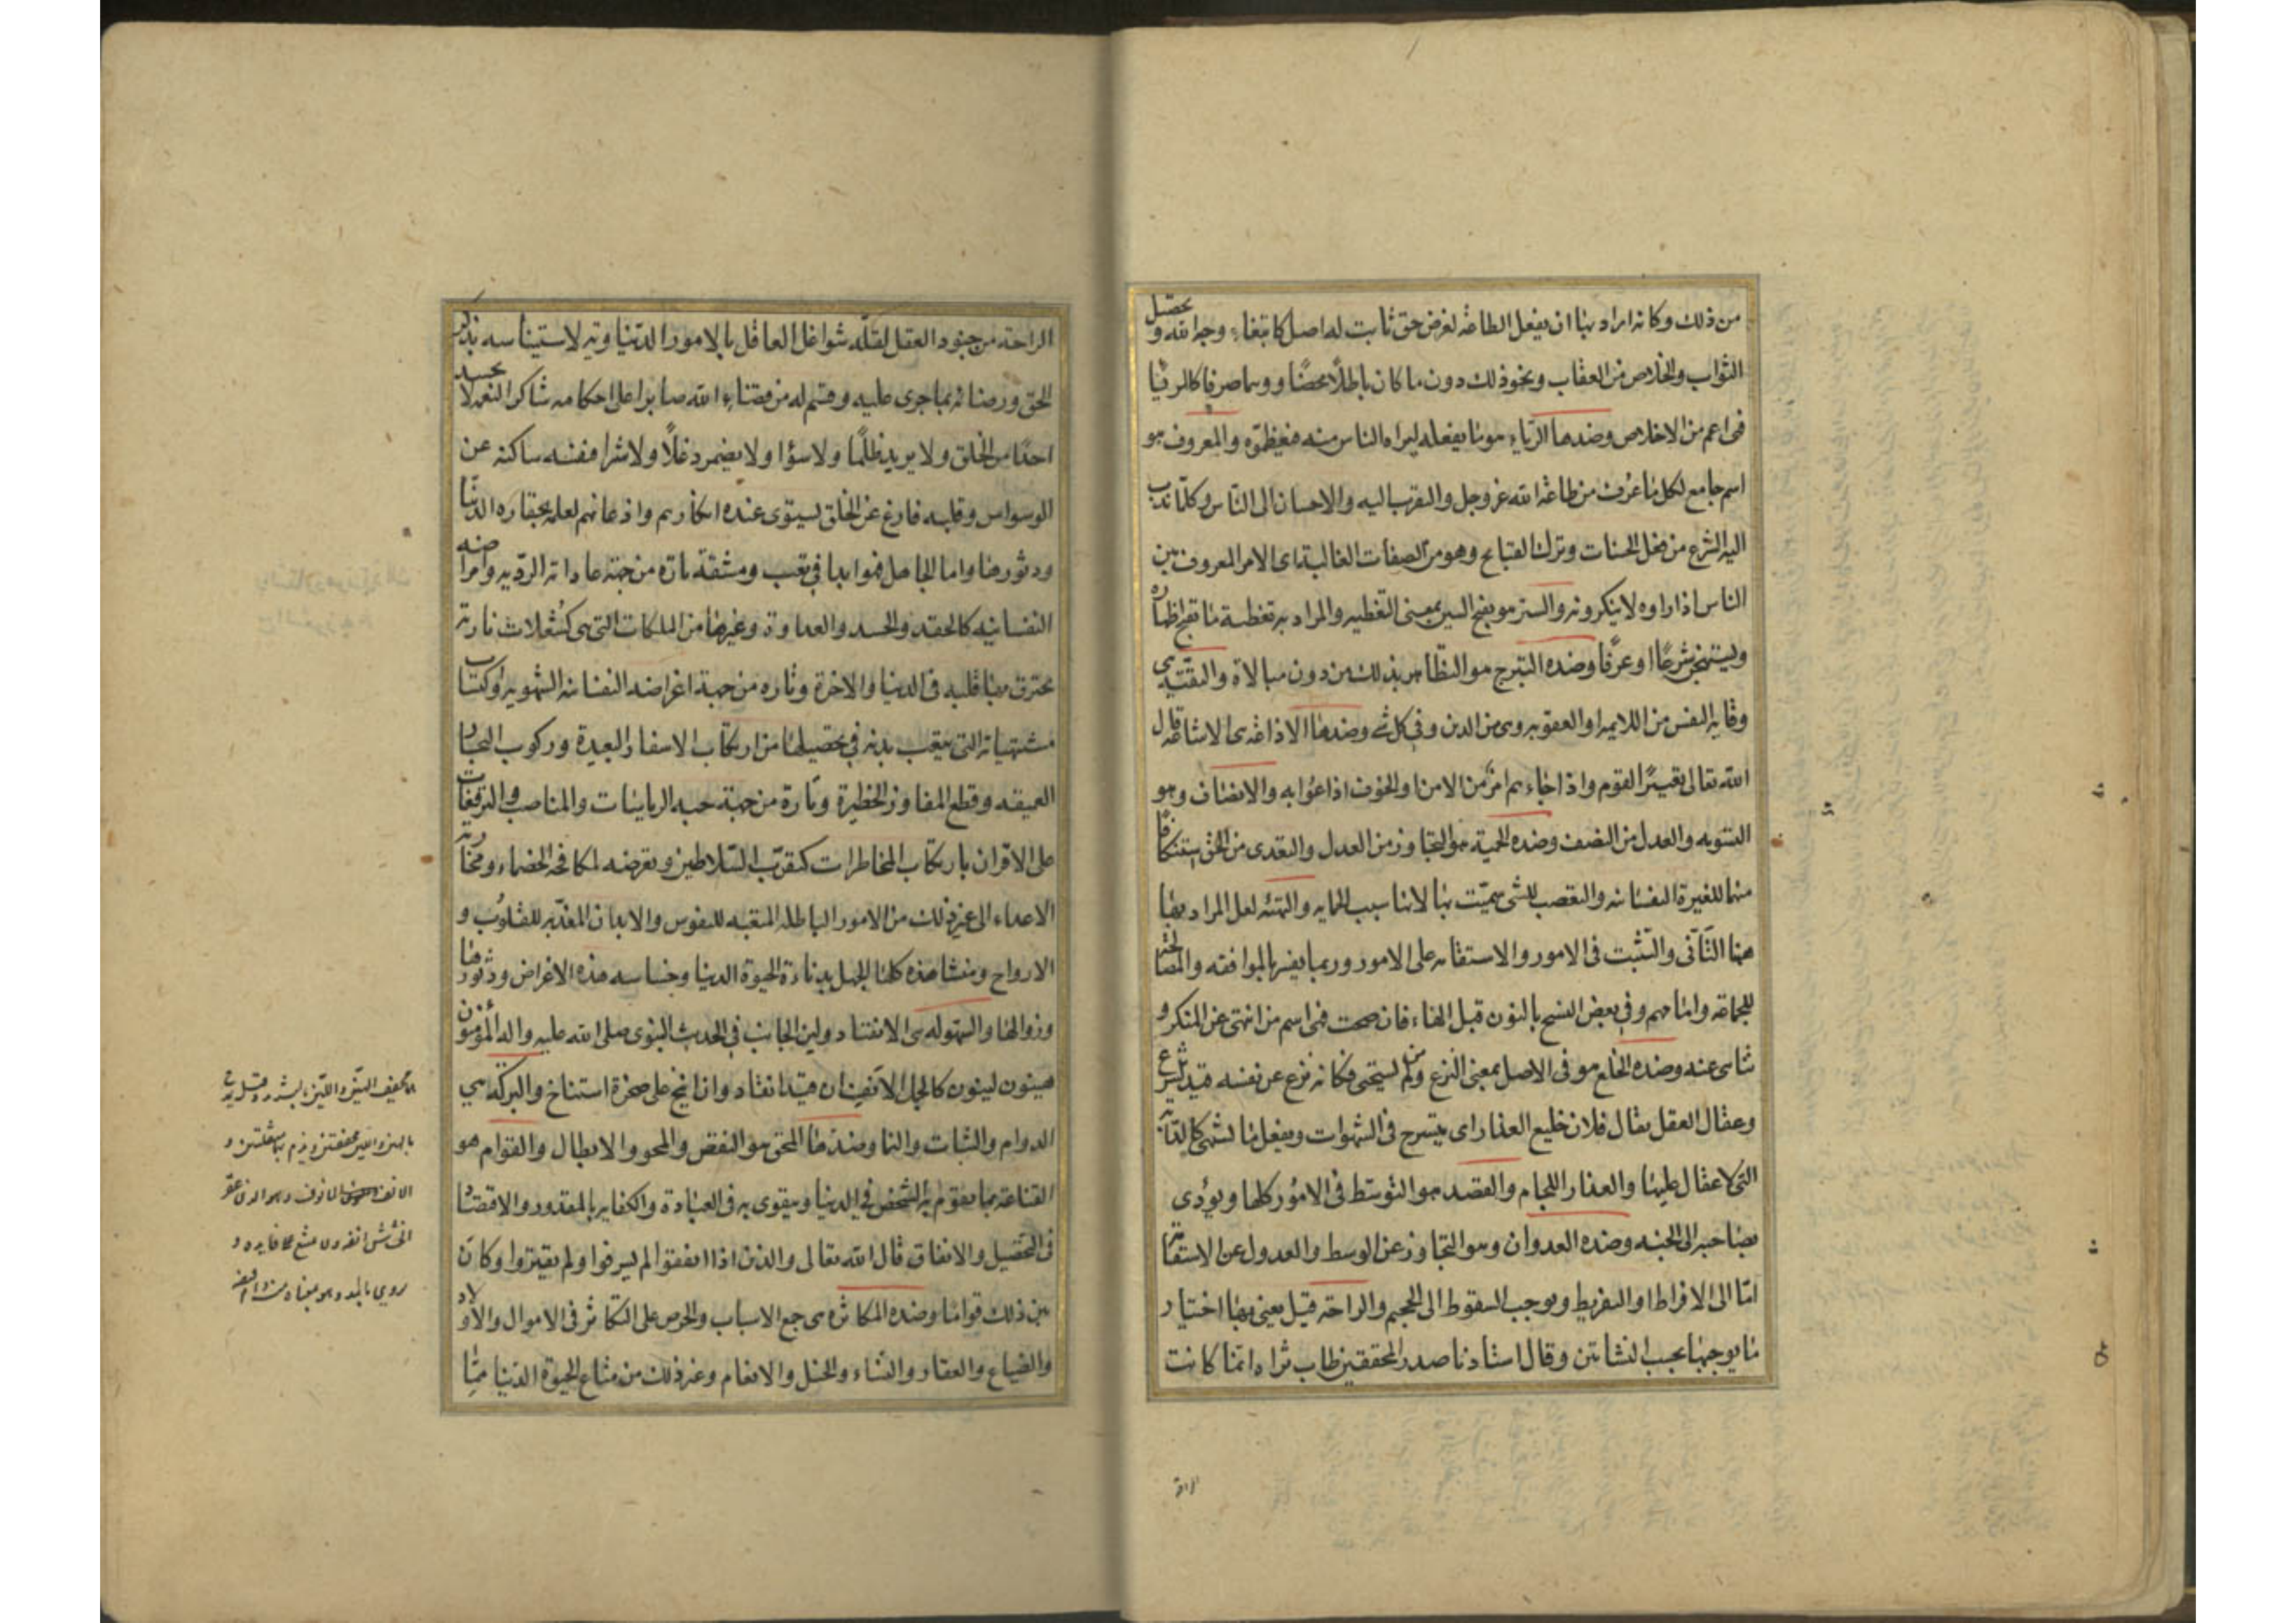 من ذلك وكانه اراد بها ان يفعل الطاعة لغرض حق ثابت له اصل كابتغاء وجه الله و تحصيل
الثواب والخلاص من العقاب ونحو ذلك دون ما كان باطلًا محضًا ووهما صرفا كالريا
فهى اعم من الاخلاص وضدها الرياء هو ما يفعله ليراه الناس منه فيعظموه والمعروف هو
اسم جامع لكل ما عرف من طاعة الله عز وجل والتقرب اليه والاحسان الى الناس وكلما ندب
اليه الشرع من فعل الحسنات وترك القبايح وهو من الصفات الغالبة اى الامر المعروف بين
الناس اذا راوه لا ينكرونه والستر هو بفتح السين بمعنى التغطيه والمراد به تغطية ما يقبح اظهاره
ويستهجن شرعًا او عرفًا وضده التبرج هو التظاهر بذلك من دون مبالاة والتقيه هى
وقايه النفس من اللايمه او العقوبه وهى من الدين وفى كل شىء وضدها الاذاعه هى الاشاعه قال
الله تعالى تعييرًا لقوم واذا جاءهم امر من الامن او الخوف اذاعوا به والانصاف وهو
التسويه والعدل من النصف وضده الحمية هو التجاوز من العدل والتعدى من الحق استنكافًا
منها للغيرة النفسانيه والتعصب للشى سميت بها لانها سبب الحمايه والتهيئه لعل المراد بها
ههنا التأنى والتثبت فى الامور والاستقامه على الامور وربما يفسر بالموافقه والمصالحة
للجماعه وامامهم وفى بعض النسخ بالنون قبل الهاء فان صحت فهى اسم من انتهى عن المنكر و
تناهى عنه وضده الخلع هو فى الاصل بمعنى النزع ومن لم يستحى فكانه نزع عن نفسه قيد الشرع
وعقال العقل يقال فلان خليع العذار اى يتسرح فى الشهوات ويفعل ما يشتهى كالدابة
التى لا عقال عليها والعذار اللجام والقصد هو التوسط فى الامور كلها ويؤدى
بصاحبه الى الجنه وضده العدوان وهو التجاوز عن الوسط والعدول عن الاستقامة
امّا الى الافراط او التفريط ويوجب السقوط الى الجحيم والراحه قيل يعنى بها اختيار
ما يوجبها بحسب النشاتين وقال استادنا صدر المحققين طاب ثراه انما كانت
الراحة من جنود العقل لقله شواغل العاقل بالامور الدنياوية لاستيناسه بذكر
الحق ورضائه بما جرى عليه وقسم له من قضاء الله صابرا على احكامه شاكرا لنعمه لا يحسد
احدًا من الخلق ولا يريد ظلمًا ولا سؤا ولا يضمر دغلًا ولا شرا فنفسه ساكنه عن
الوسواس وقلبه فارغ عن الخلق ليستوى عنده انكارهم واذعانهم لعلمه بحقاره الدنيا
ودثورها واما الجاهل فهو ابدا فى تعب ومشقة تارة من جهة عاداته الرديه وامراضه
النفسانيه كالحقد والحسد والعداوة وغيرها من الملكات التى هى كشعلات نارية
يحترق بها قلبه فى الدنيا والاخرة وتاره من جهة اغراضه النفسانه الشهويه او اكتساب
مشتهياته التى يتعب بدنه فى تحصيلها من ارتكاب الاسفار البعيدة وركوب البحار
العميقه وقطع المفاوز الخطيرة وتارة من جهة حبه الرياسات والمناصب والترفعات
على الاقران بارتكاب المخاطرات كتقرب السلاطين وتعرضه لمكافحه الخصماء ومحاربة
الاعداء الى غير ذلك من الامور الباطله المتعبه للنفوس والابدان المعذبه للقلوب و
الارواح ومنشا هذه كلها الجهل بدناءة الحيوة الدنيا وخساسه هذه الاغراض ودثورها
وزوالها والسهوله هى الانقياد ولين الجانب فى الحديث النبوى صلى الله عليه واله المؤمنون
هينون لينون كالجمل الانف ان قيد انقاد وان انيخ على صخرة استناخ والبركه هى
الدوام والثبات والنما وضدها المحق هو النقض والمحو والابطال والقوام هو
القناعه بما يقوم به الشخص فى الدنيا ويتقوى به فى العبادة والكفايه بالمقدور والاقتصاد
فى التحصيل والانفاق قال الله تعالى والذين اذا انفقوا لم يسرفوا ولم يقتروا وكان
بين ذلك قواما وضده المكاثره هى جمع الاسباب والحرص على التكاثر فى الاموال والاولاد
والضياع والعقار والنساء والخيل والانعام وغير ذلك من متاع الحيوة الدنيا مما